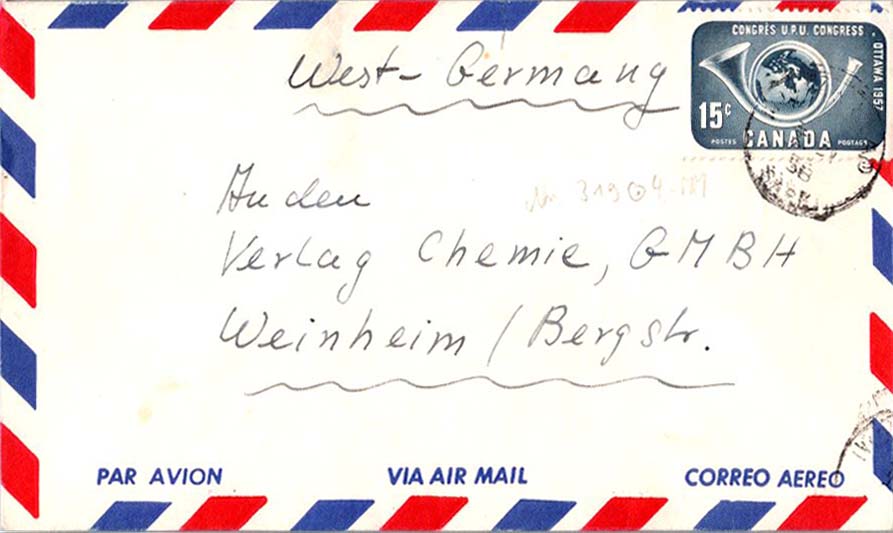 CONGRÈS U.P.U. CONGRESS • OTTAWA 1957
15¢
POSTES CANADA POSTAGE
West-Germany
An den
Verlag Chemie, GMBH
Weinheim / Bergstr.
PAR AVION VIA AIR MAIL CORREO AEREO